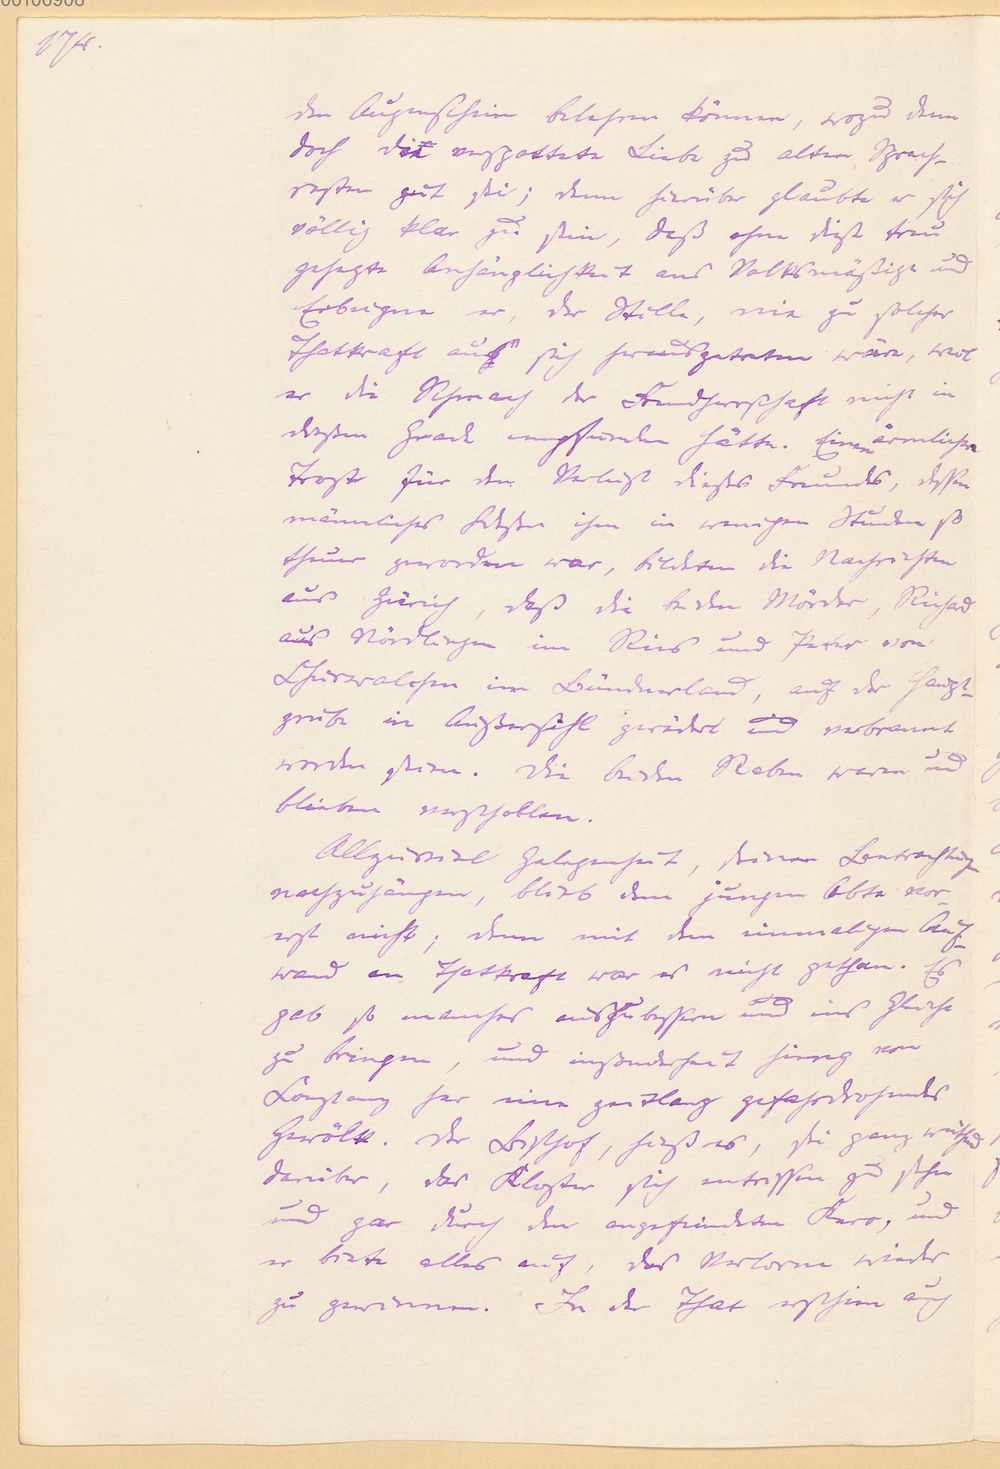 00106908
174.
den Augenschein belehren können, wozu denn
doch die verspottete Liebe zu alten Sprach-
resten gut sei; denn hierüber glaubte er sich
völlig klar zu sein, daß ohne diese treu
gehegte Anhänglichkeit ans Volksmäßige und
Erbeigene er, der Stille, nie zu solcher
Thatkraft aus sich herausgetreten wäre, weil
er die Schmach der Fremdherrschaft nicht in
diesem Grade empfunden hätte. Einen ärmlichen
Trost für den Verlust dieses Freundes, dessen
männliches Wesen ihm in wenigen Stunden so
theuer geworden war, bildeten die Nachrichten
aus Zürich, daß die beiden Mörder, Richard
aus Nördlingen im Ries und Peter von
Churwalchen im Bündnerland, auf der Haupt-
grube in Außersihl gerädert und verbrannt
worden seien. Die beiden Raben waren und
blieben verschollen.
Allzuviel Gelegenheit, seinen Betrachtungen
nachzuhängen, blieb dem jungen Abte vor-
erst nicht; denn mit dem einmaligen Auf-
wand an Thatkraft war es nicht gethan. Es
gab so manches auszubessern und ins Gleiche
zu bringen, und insonderheit hieng von
Constanz her eine zeitlang gefahrdrohendes
Gewölk. Der Bischof, hieß es, sei ganz wüthend
darüber, das Kloster sich entrissen zu sehn
und gar durch den angefeindeten Kero, und
er biete alles auf, das Verlorne wieder
zu gewinnen. In der That erschien auch